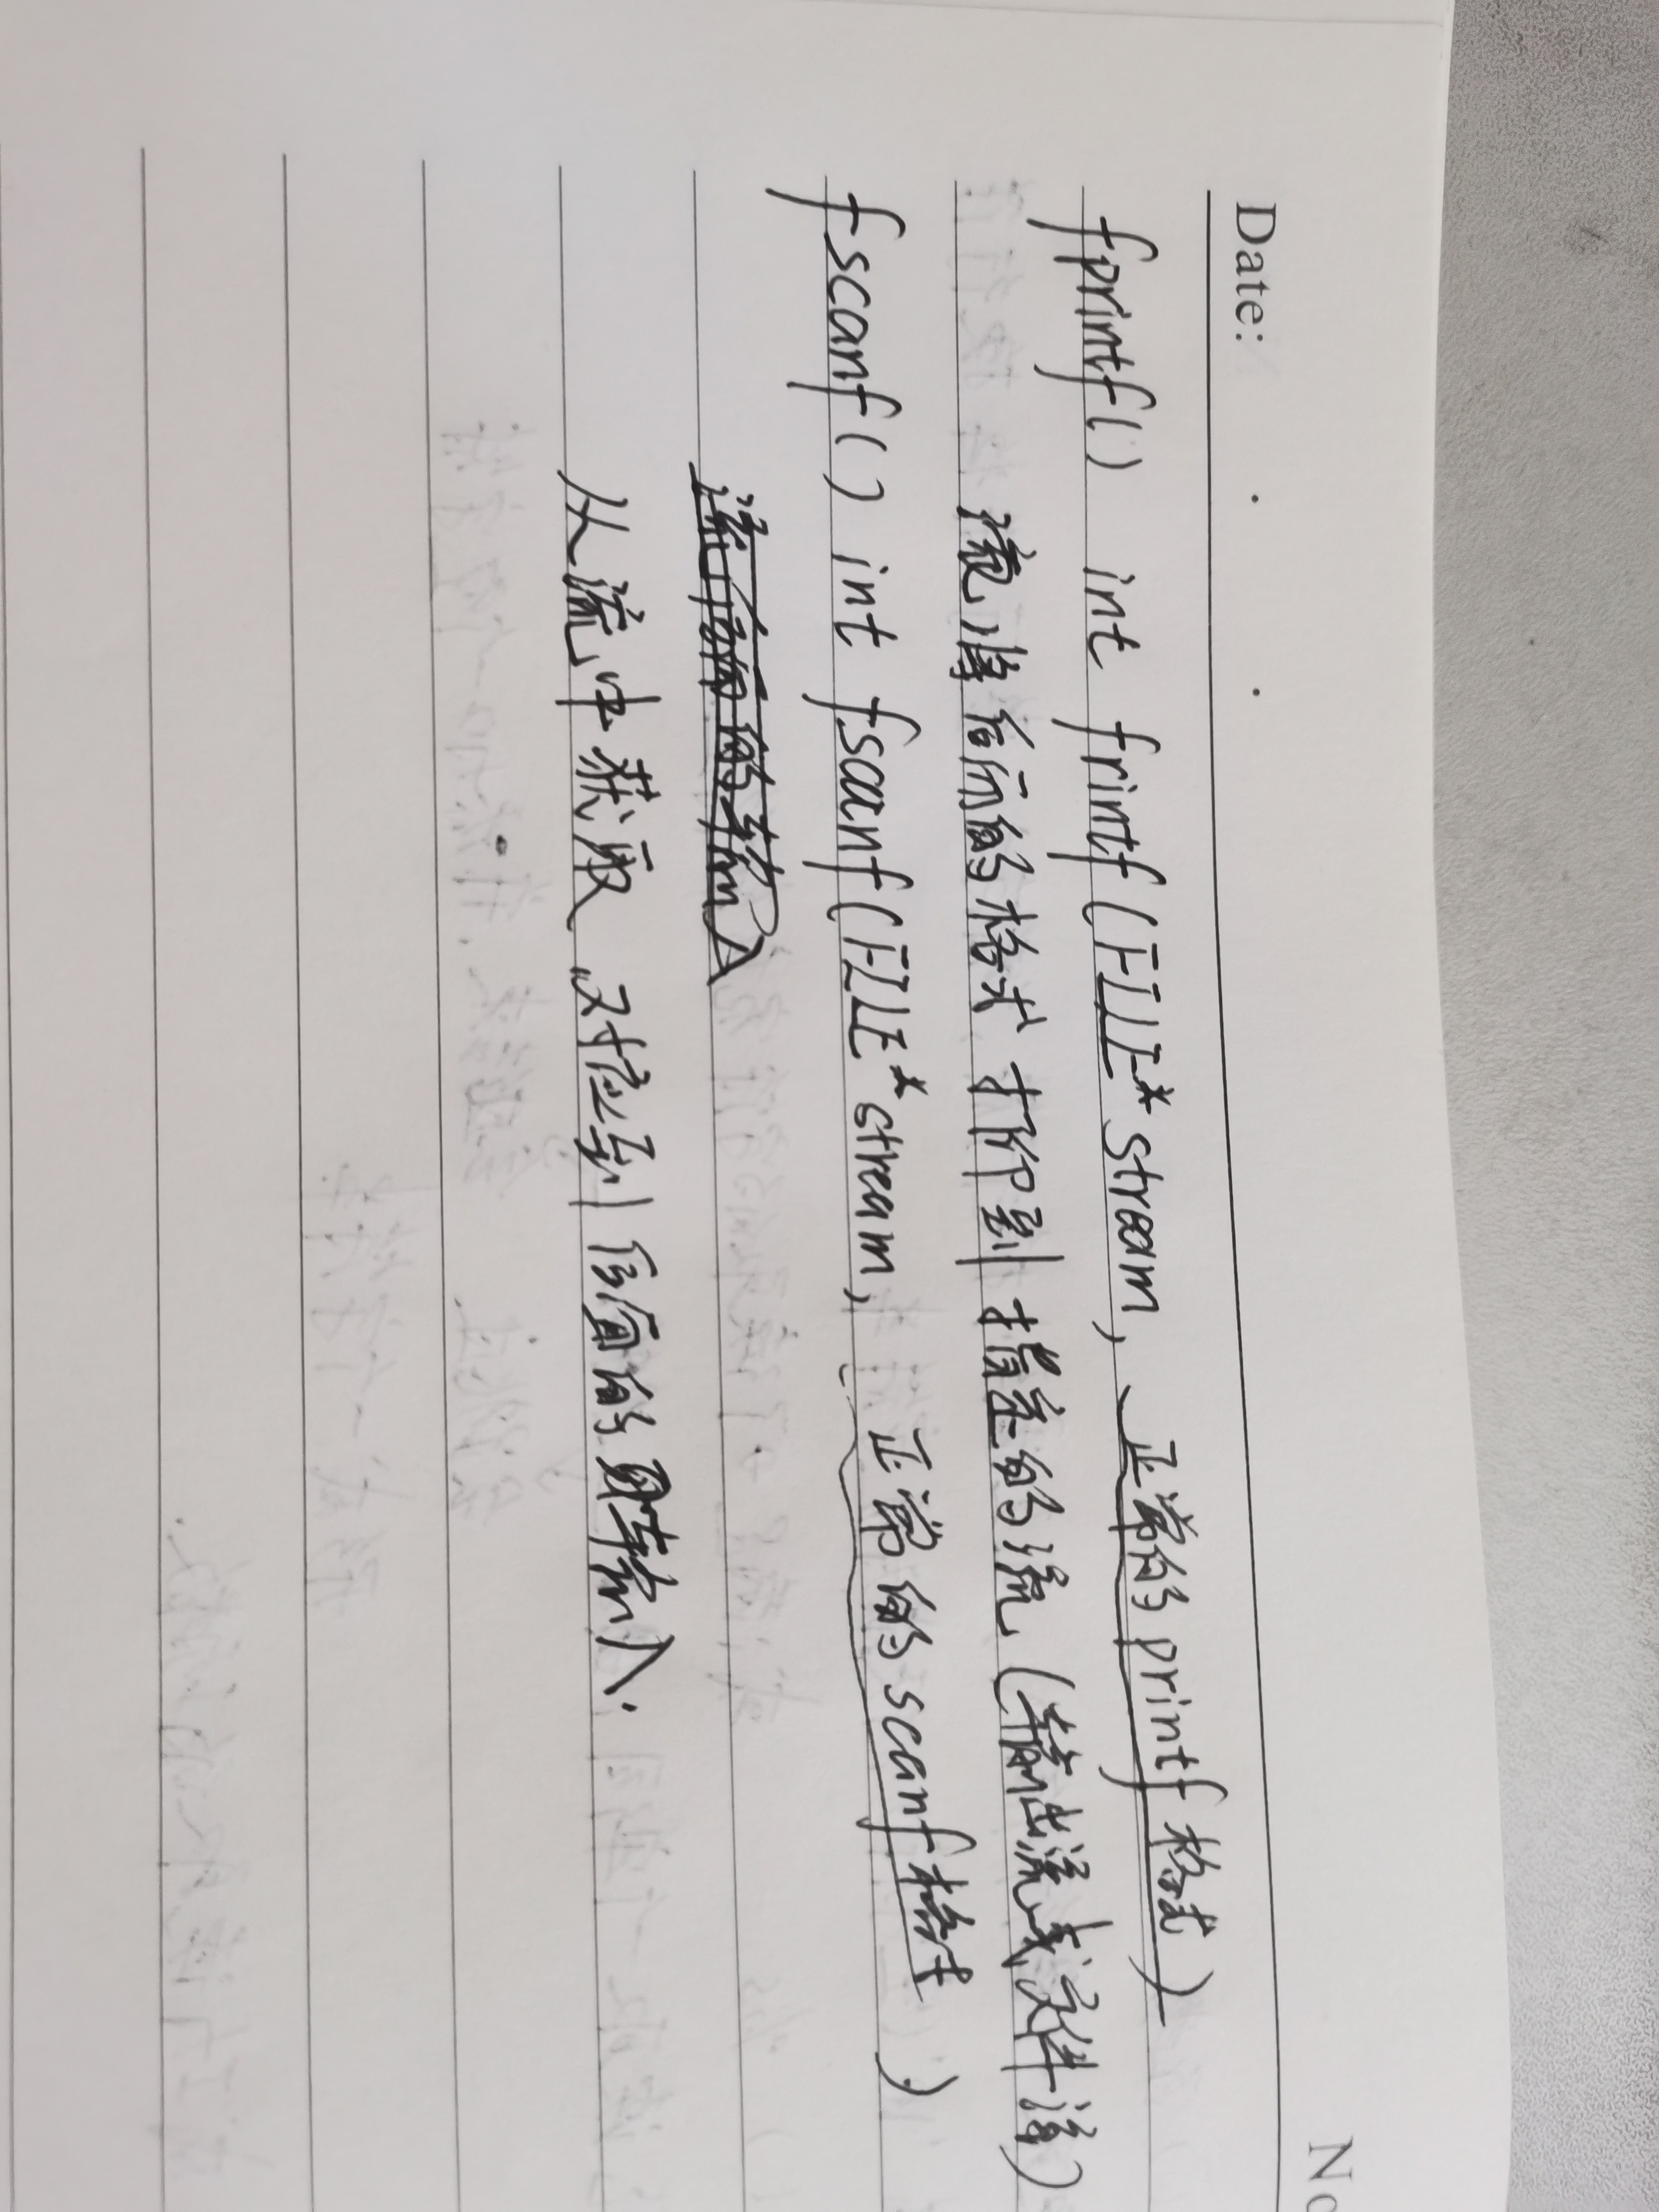 Date:
No
fprintf() int frintf(FILE* stream, 正常的printf格式)
流,将后面的格式打印到指定的流(输出流或文件流)
fscanf() int fsanf(FILE* stream, 正常的scanf格式)
从流中获取 对应到后面的输入.